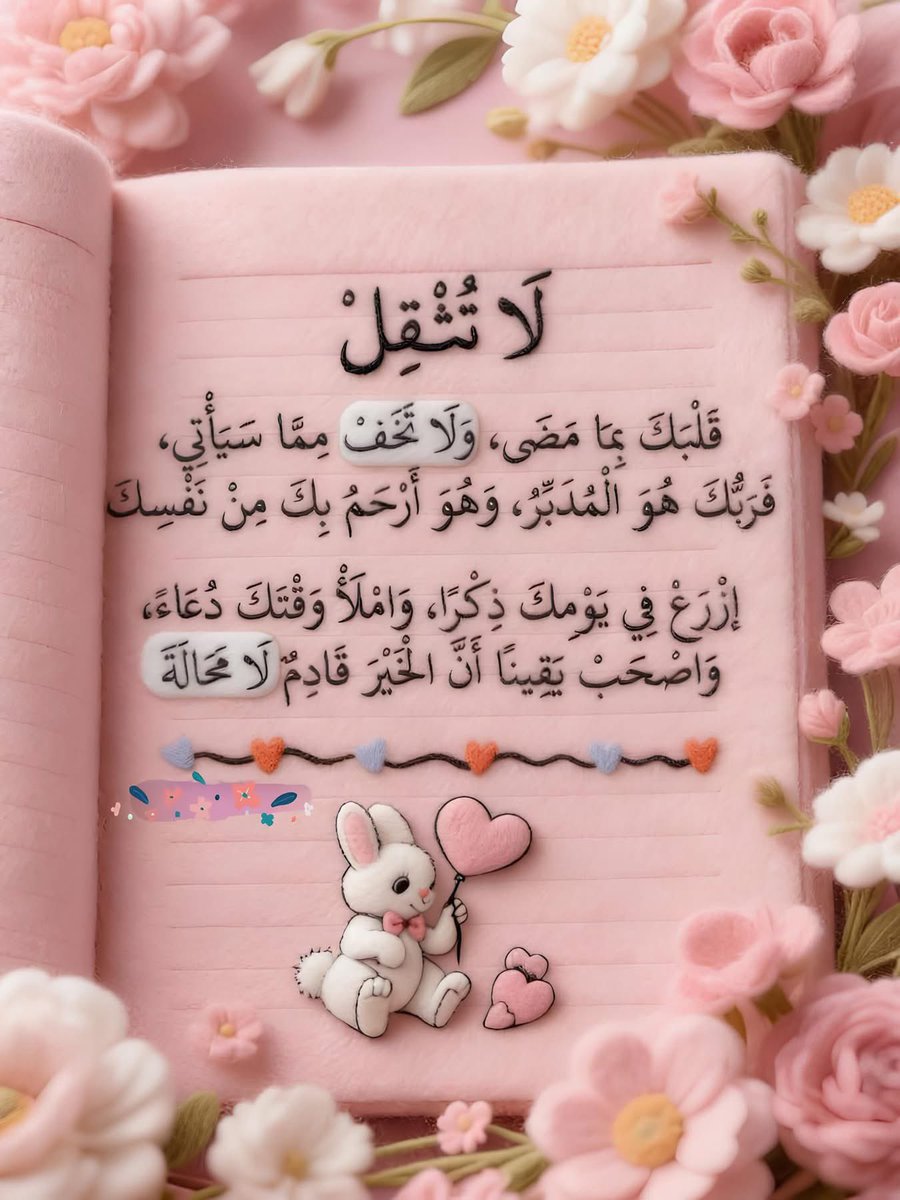 لَا تُثْقِلْ
قَلْبَكَ بِمَا مَضَى، وَلَا تَخَفْ مِمَّا سَيَأْتِي،
فَرَبُّكَ هُوَ الْمُدَبِّرُ، وَهُوَ أَرْحَمُ بِكَ مِنْ نَفْسِكَ
إزْرَعْ فِي يَوْمِكَ ذِكْرًا، وَامْلَأْ وَقْتَكَ دُعَاءً،
وَاصْحَبْ يَقِينًا أَنَّ الْخَيْرَ قَادِمٌ لَا مَحَالَةَ